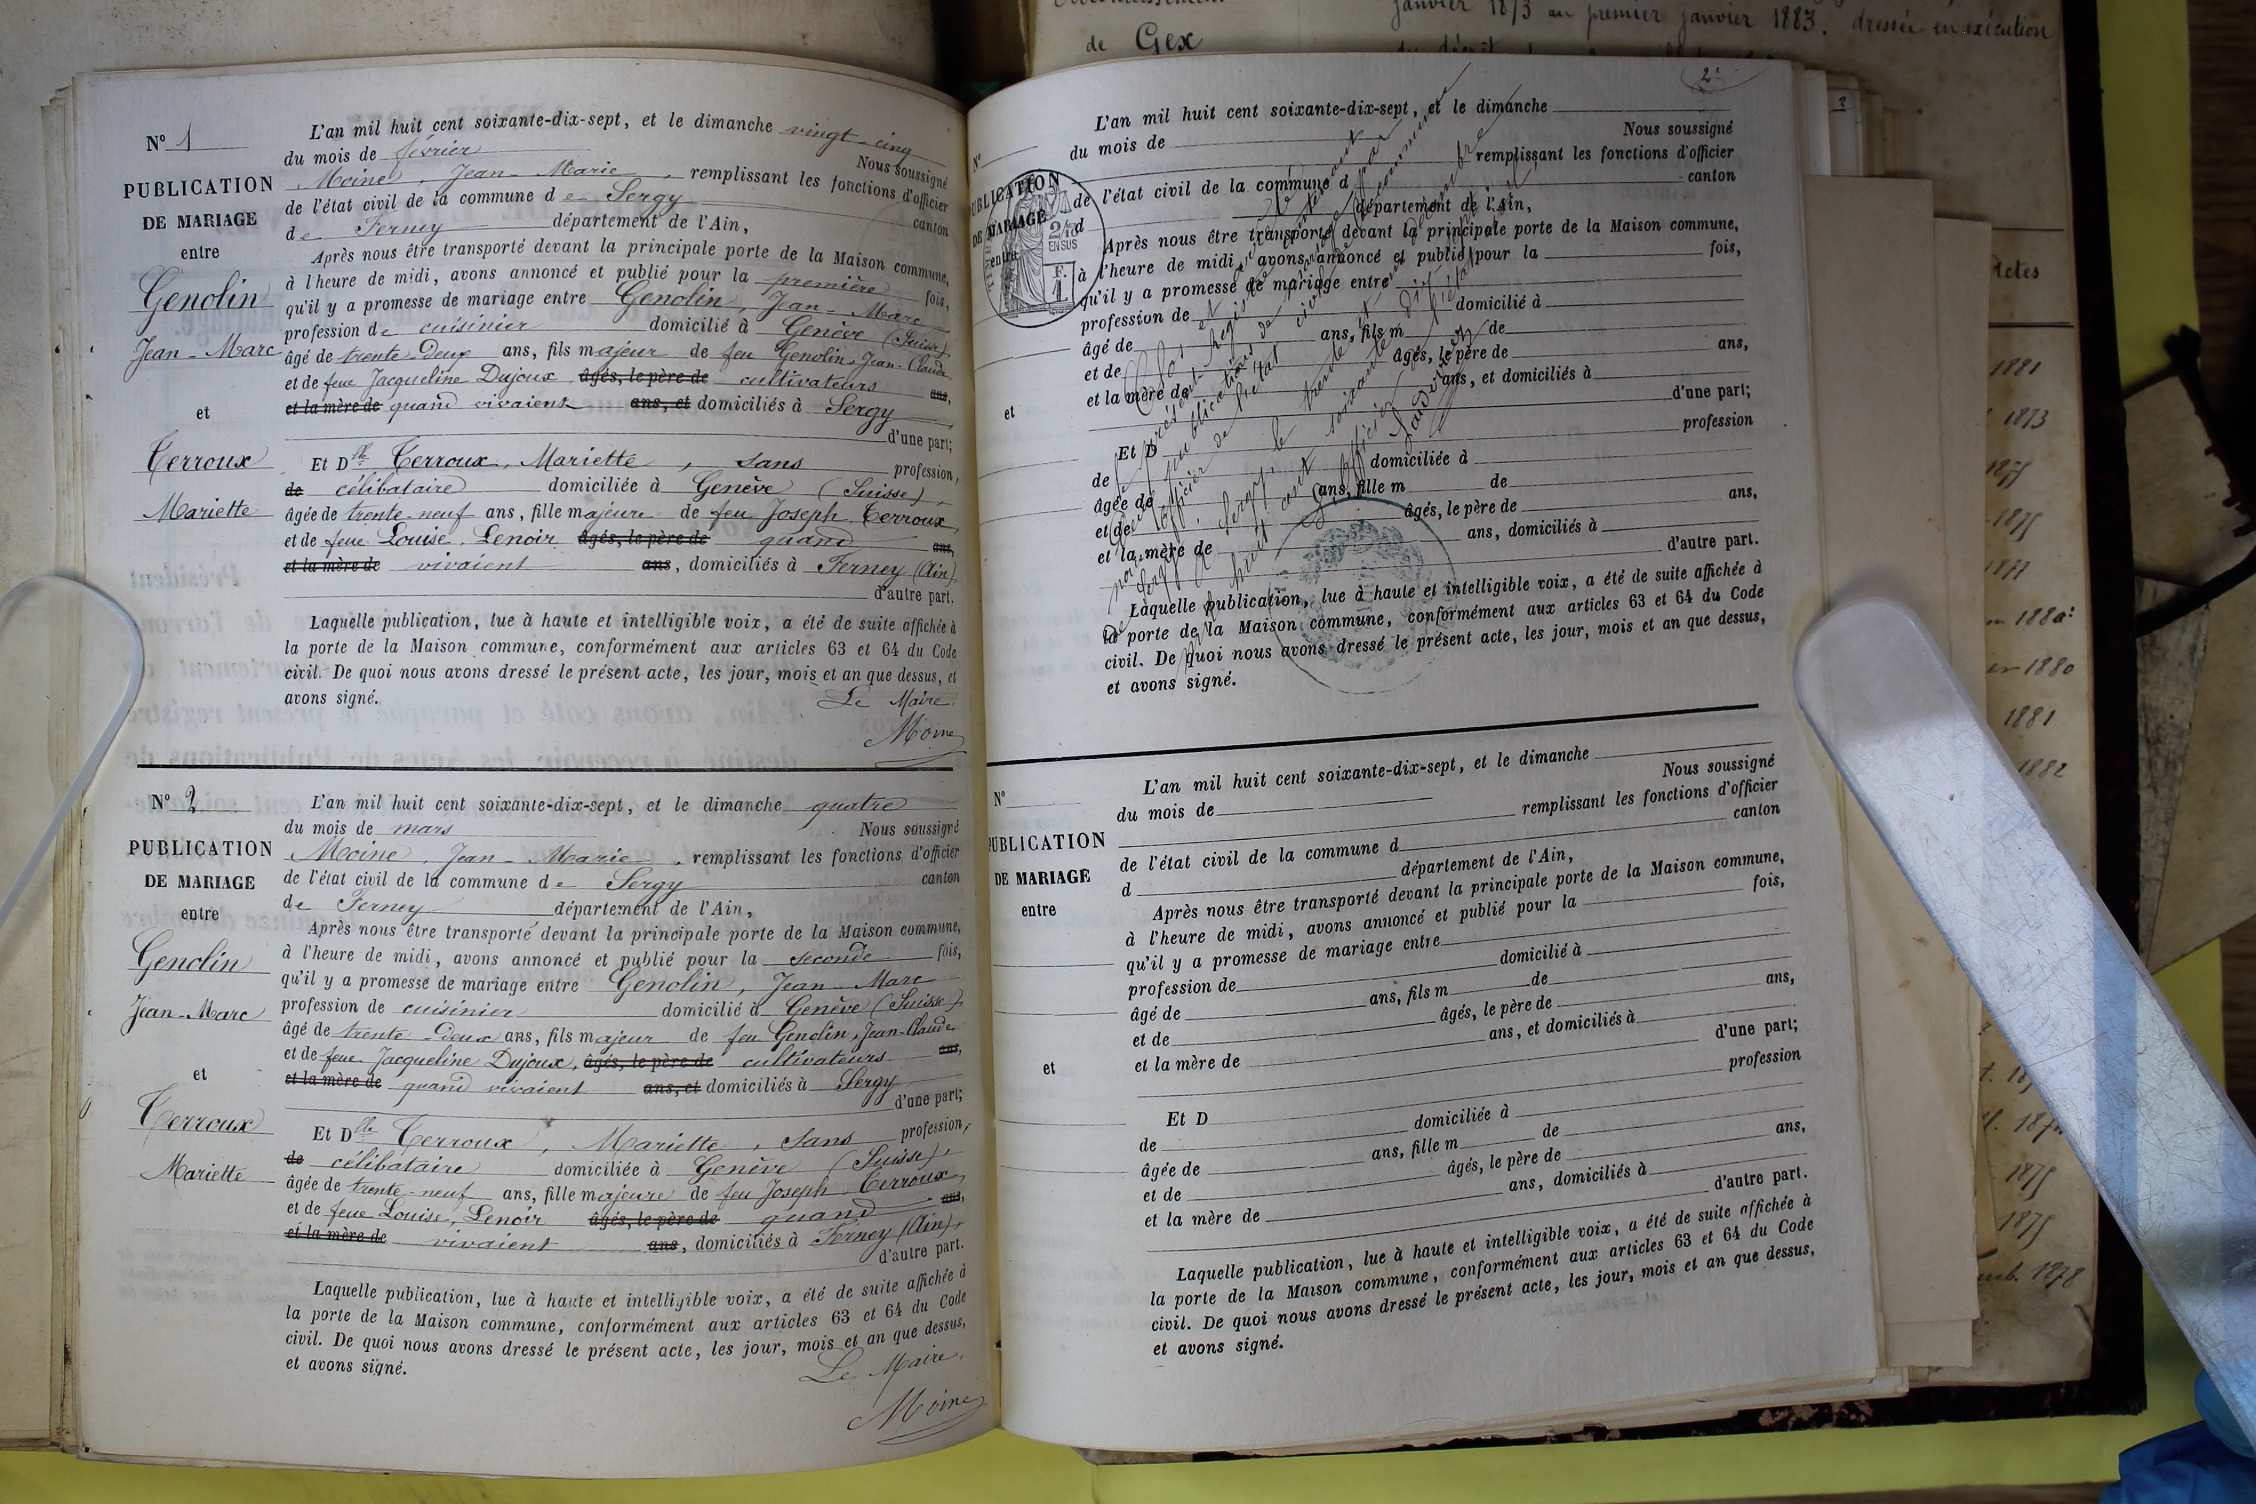 N° 1
PUBLICATION
DE MARIAGE
entre
Genolin
Jean-Marc
et
Terroux
Mariette
L'an mil huit cent soixante-dix-sept, et le dimanche vingt-cinq
du mois de février Nous soussigné
Moine, Jean-Marie, remplissant les fonctions d'officier
de l'état civil de la commune de Sergy canton
de Ferney département de l'Ain,
Après nous être transporté devant la principale porte de la Maison commune,
à l'heure de midi, avons annoncé et publié pour la première fois,
qu'il y a promesse de mariage entre Genolin, Jean-Marc
profession de cuisinier domicilié à Genève (Suisse)
âgé de trente-deux ans, fils majeur de feu Genolin, Jean-Claude
et de feue Jacqueline Dujoux âgés, le père de cultivateurs ans,
et la mère de quand vivaient ans, et domiciliés à Sergy
d'une part;
Et Dlle Terroux, Mariette, sans profession,
de célibataire domiciliée à Genève (Suisse),
âgée de trente-neuf ans, fille majeure de feu Joseph Terroux
et de feue Louise Lenoir âgés, le père de quand ans,
et la mère de vivaient ans, domiciliés à Ferney (Ain)
d'autre part.
Laquelle publication, lue à haute et intelligible voix, a été de suite affichée à
la porte de la Maison commune, conformément aux articles 63 et 64 du Code
civil. De quoi nous avons dressé le présent acte, les jour, mois et an que dessus, et
avons signé.
Le Maire
Moine
N° 2
PUBLICATION
DE MARIAGE
entre
Genolin
Jean-Marc
et
Terroux
Mariette
L'an mil huit cent soixante-dix-sept, et le dimanche quatre
du mois de mars Nous soussigné
Moine, Jean-Marie, remplissant les fonctions d'officier
de l'état civil de la commune de Sergy canton
de Ferney département de l'Ain,
Après nous être transporté devant la principale porte de la Maison commune,
à l'heure de midi, avons annoncé et publié pour la seconde fois,
qu'il y a promesse de mariage entre Genolin, Jean-Marc
profession de cuisinier domicilié à Genève (Suisse),
âgé de trente-deux ans, fils majeur de feu Genolin, Jean-Claude
et de feue Jacqueline Dujoux, âgés, le père de cultivateurs ans,
et la mère de quand vivaient ans, et domiciliés à Sergy
d'une part;
Et Dlle Terroux, Mariette, sans profession,
de célibataire domiciliée à Genève (Suisse),
âgée de trente-neuf ans, fille majeure de feu Joseph Terroux,
et de feue Louise, Lenoir âgés, le père de quand ans,
et la mère de vivaient ans, domiciliés à Ferney (Ain),
d'autre part.
Laquelle publication, lue à haute et intelligible voix, a été de suite affichée à
la porte de la Maison commune, conformément aux articles 63 et 64 du Code
civil. De quoi nous avons dressé le présent acte, les jour, mois et an que dessus,
et avons signé.
Le Maire,
Moine
janvier 1873 au premier janvier 1883. dressée en exécution
de Gex
2
N°
PUBLICATION
DE MARIAGE
entre
et
L'an mil huit cent soixante-dix-sept, et le dimanche
du mois de Nous soussigné
remplissant les fonctions d'officier
de l'état civil de la commune d canton
d département de l'Ain,
Après nous être transporté devant la principale porte de la Maison commune,
à l'heure de midi, avons annoncé et publié pour la fois,
qu'il y a promesse de mariage entre
profession de domicilié à
âgé de ans, fils m de
et de âgés, le père de ans,
et la mère de ans, et domiciliés à
d'une part;
Et D profession
de domiciliée à
âgée de ans, fille m de
et de âgés, le père de ans,
et la mère de ans, domiciliés à
d'autre part.
Laquelle publication, lue à haute et intelligible voix, a été de suite affichée à
la porte de la Maison commune, conformément aux articles 63 et 64 du Code
civil. De quoi nous avons dressé le présent acte, les jour, mois et an que dessus,
et avons signé.
Clos et
le présent registre
publications de
l'officier de l'état civil
Sergy, le trente et un décembre
mil huit cent soixante dix sept
L'officier de l'état civil
N°
PUBLICATION
DE MARIAGE
entre
et
L'an mil huit cent soixante-dix-sept, et le dimanche
du mois de Nous soussigné
remplissant les fonctions d'officier
de l'état civil de la commune d canton
d département de l'Ain,
Après nous être transporté devant la principale porte de la Maison commune,
à l'heure de midi, avons annoncé et publié pour la fois,
qu'il y a promesse de mariage entre
profession de domicilié à
âgé de ans, fils m de
et de âgés, le père de ans,
et la mère de ans, et domiciliés à
d'une part;
Et D profession
de domiciliée à
âgée de ans, fille m de
et de âgés, le père de ans,
et la mère de ans, domiciliés à
d'autre part.
Laquelle publication, lue à haute et intelligible voix, a été de suite affichée à
la porte de la Maison commune, conformément aux articles 63 et 64 du Code
civil. De quoi nous avons dressé le présent acte, les jour, mois et an que dessus,
et avons signé.
Actes
1881
1873
1875
1877
1880
1881
1882
1875
1875
1878